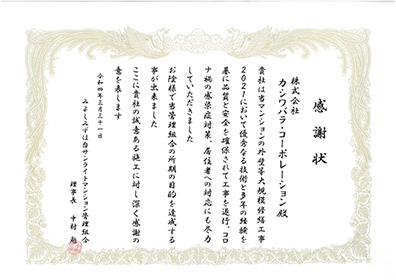 感謝状
株式会社
カシワバラ・コーポレーション殿
貴社は当マンションの外壁等大規模修繕工事
2021において優秀なる技術と多年の経験を
基に品質と安全を確保されて工事を遂行、コロ
ナ禍の感染症対策、居住者への対応にも尽力
していただきました
お陰様で当管理組合の所期の目的を達成する
事が出来ました
ここに貴社の誠意ある施工に対し深く感謝の
意を表します
令和四年三月三十一日
みよしみずほ台サンライトマンション管理組合
理事長 中村 勉